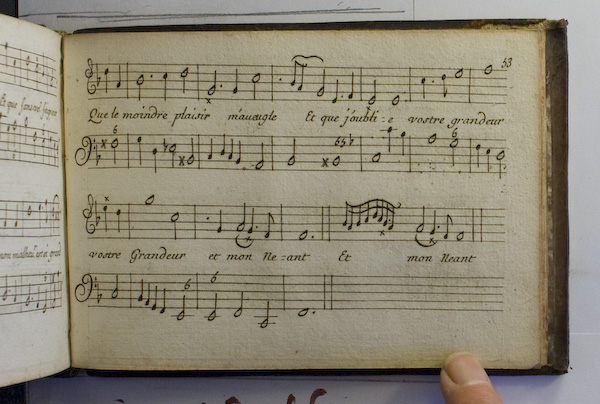 53
Que le moindre plaisir m'aveugle Et que j'oubli :e vostre grandeur
vostre Grandeur et mon Ne :ant Et mon Neant